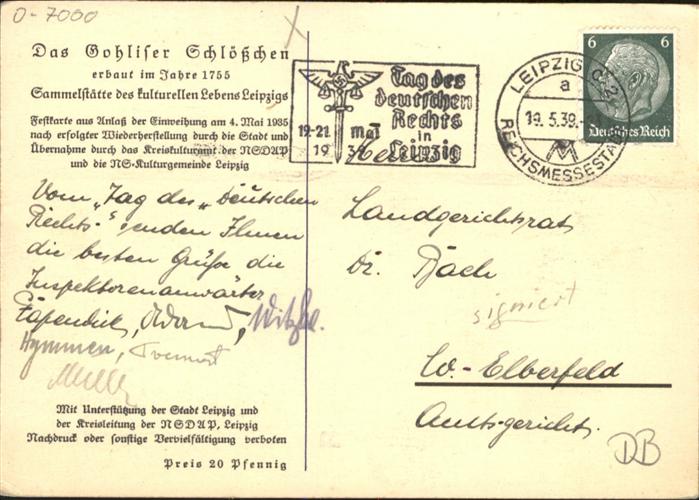 O-7000
Das Gohliser Schlößchen
erbaut im Jahre 1755
Sammelstätte des kulturellen Lebens Leipzigs
Festkarte aus Anlaß der Einweihung am 4. Mai 1935
nach erfolgter Wiederherstellung durch die Stadt und
Übernahme durch das Kreiskulturamt der NSDAP
und die NS-Kulturgemeinde Leipzig
Vom „Tag des „Deutschen
Rechts" senden Ihnen
die besten Grüße die
Inspektorenanwärter
Papendick,
Hymmen,
Mit Unterstützung der Stadt Leipzig und
der Kreisleitung der NSDAP, Leipzig
Nachdruck oder sonstige Vervielfältigung verboten
Preis 20 Pfennig
Tag des
deutschen
Rechts
in
Leipzig
19.-21. Mai
19
LEIPZIG C 2
a
19.5.39.
REICHSMESSESTADT
6 6
Deutsches Reich
Herrn
Landgerichtsrat
Dr. Bach
signiert
W.-Elberfeld
Amtsgericht.
DB